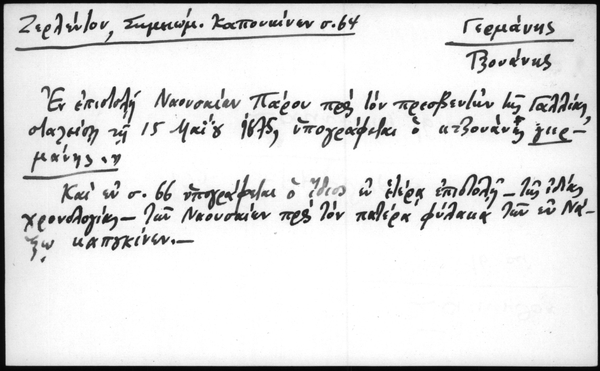 Ζερλέντου, Σημειώμ. Καπουκίνων σ. 64
Γερμάνης
Τζουάνης
Ἐν ἐπιστολῇ Ναουσαίων Πάρου πρὸς τὸν πρεσβευτὴν τῆς Γαλλίας,
σταλείσῃ τῇ 15 Μαΐου 1675, ὑπογράφεται ὁ «τζουάνης γερ-
μάνης».
Καὶ ἐν σ. 66 ὑπογράφεται ὁ ἴδιος ἐν ἑτέρᾳ ἐπιστολῇ – τῆς ἰδίας
χρονολογίας – τῶν Ναουσαίων πρὸς τὸν πατέρα φύλακα τῶν ἐν Νά-
ξῳ καπουκίνων.–